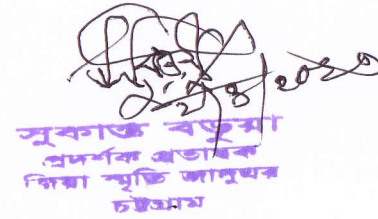 সুকান্ত বড়ুয়া
প্রদর্শক প্রভাষক
জিয়া স্মৃতি জাদুঘর
চট্টগ্রাম